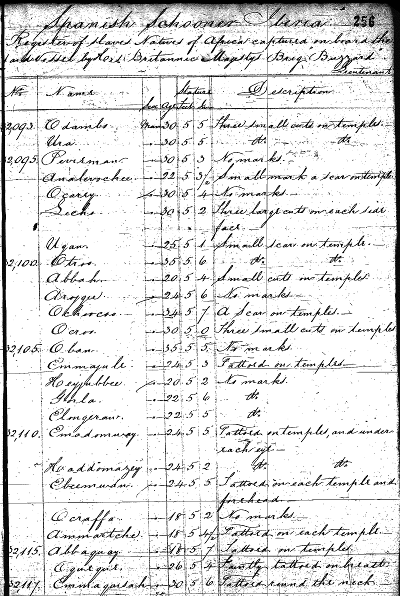 Spanish Schooner Iberia 256
Register of Slaves Natives of Africa captured on board the
said vessel by Her Britannic Majesty's Brig "Buzzard"
Lieutenant
No. Name Sex Age Stature Description
Feet In.
32,093. Odambo Man 30 5 5 Three small cuts on temples
Ura 30 5 5 do. do.
32,095. Peverman 30 5 3 No marks
Analevochee 22 5 3½ Small mark a scar on temple
Ocarey 30 5 4 No marks
30 5 2 Three large cuts on each side
face
Ugan 25 5 1 Small scar on temple
32,100. Otroo 35 5 6 do. do.
Abbah 20 5 4 Small cuts on temples
24 5 6 No marks
Ochoocoo 34 5 7 A Scar on temples
Ocroo 30 5 0 Three small cuts on temples
32,105. Oban 35 5 5 No marks
24 5 3 Tattoed on temples
Heyjubbee 20 5 2 No marks
22 5 6 do.
Elongeraw 22 5 5 do.
32,110. Emadomavay 24 5 5 Tattoed on temples, and under
each eye
Haddomazey 24 5 2 do. do.
24 5 5 Tattoed on each temple and
forehead
Ocraffa 18 5 2 No marks
Ammartche 18 5 4½ Tattoed on each temple
32,115. Abbaguay 18 5 7 Tattoed on temples
26 5 4 Faintly tattoed on breast
32,117. Emmaguesah 30 5 6 Tattoed round the neck